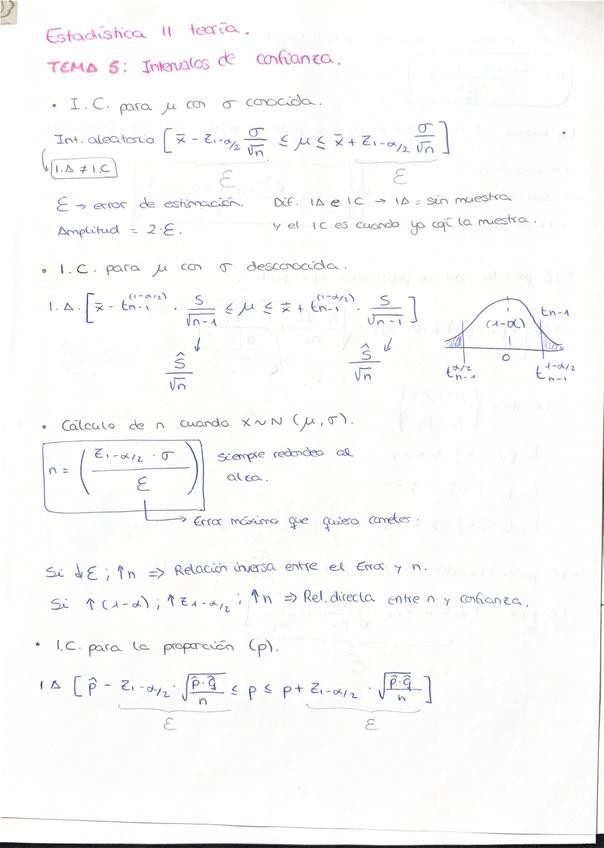 Estadística II teoría.
TEMA 5: Intervalos de confianza.
• I.C. para μ con σ conocida.
Int. aleatorio [x̄ - Z1-α/2 σ/√n ≤ μ ≤ x̄ + Z1-α/2 σ/√n]
I.A ≠ I.C
ε ε
ε → error de estimación. Dif. IA e IC → IA = sin muestra
Amplitud = 2·ε. y el IC es cuando ya cojí la muestra.
• I.C. para μ con σ desconocida.
I.A. [x̄ - t n-1 (1-α/2) · S/√n-1 ≤ μ ≤ x̄ + t n-1 (1-α/2) · S/√n-1]
Ŝ/√n Ŝ/√n
(1-α) tn-1
0
t n-1 α/2 t n-1 1-α/2
• Cálculo de n cuando X~N (μ, σ).
n = (Z1-α/2 · σ / ε) siempre redondeo al
alza.
→ Error máximo que quiero cometer.
Si ↓ε ; ↑n => Relación inversa entre el Error y n.
Si ↑(1-α) ; ↑Z1-α/2 ; ↑n => Rel. directa entre n y confianza.
• I.C. para la proporción (p).
IA [p̂ - Z1-α/2 · √p̂·q̂/n ≤ p ≤ p + Z1-α/2 · √p̂·q̂/n]
ε ε